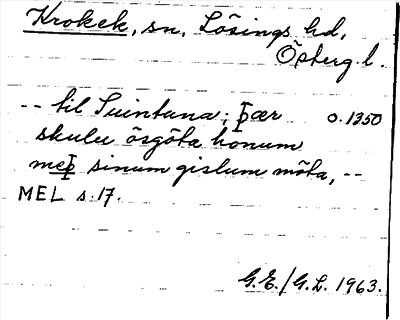 Krokek, sn, Lösings hd,
Östерg. l.
-- til Suintuna; þær o. 1350
skulu ösgöta honum
meþ sinum gislum möta, --
MEL s. 17.
G.E./G.L. 1963.